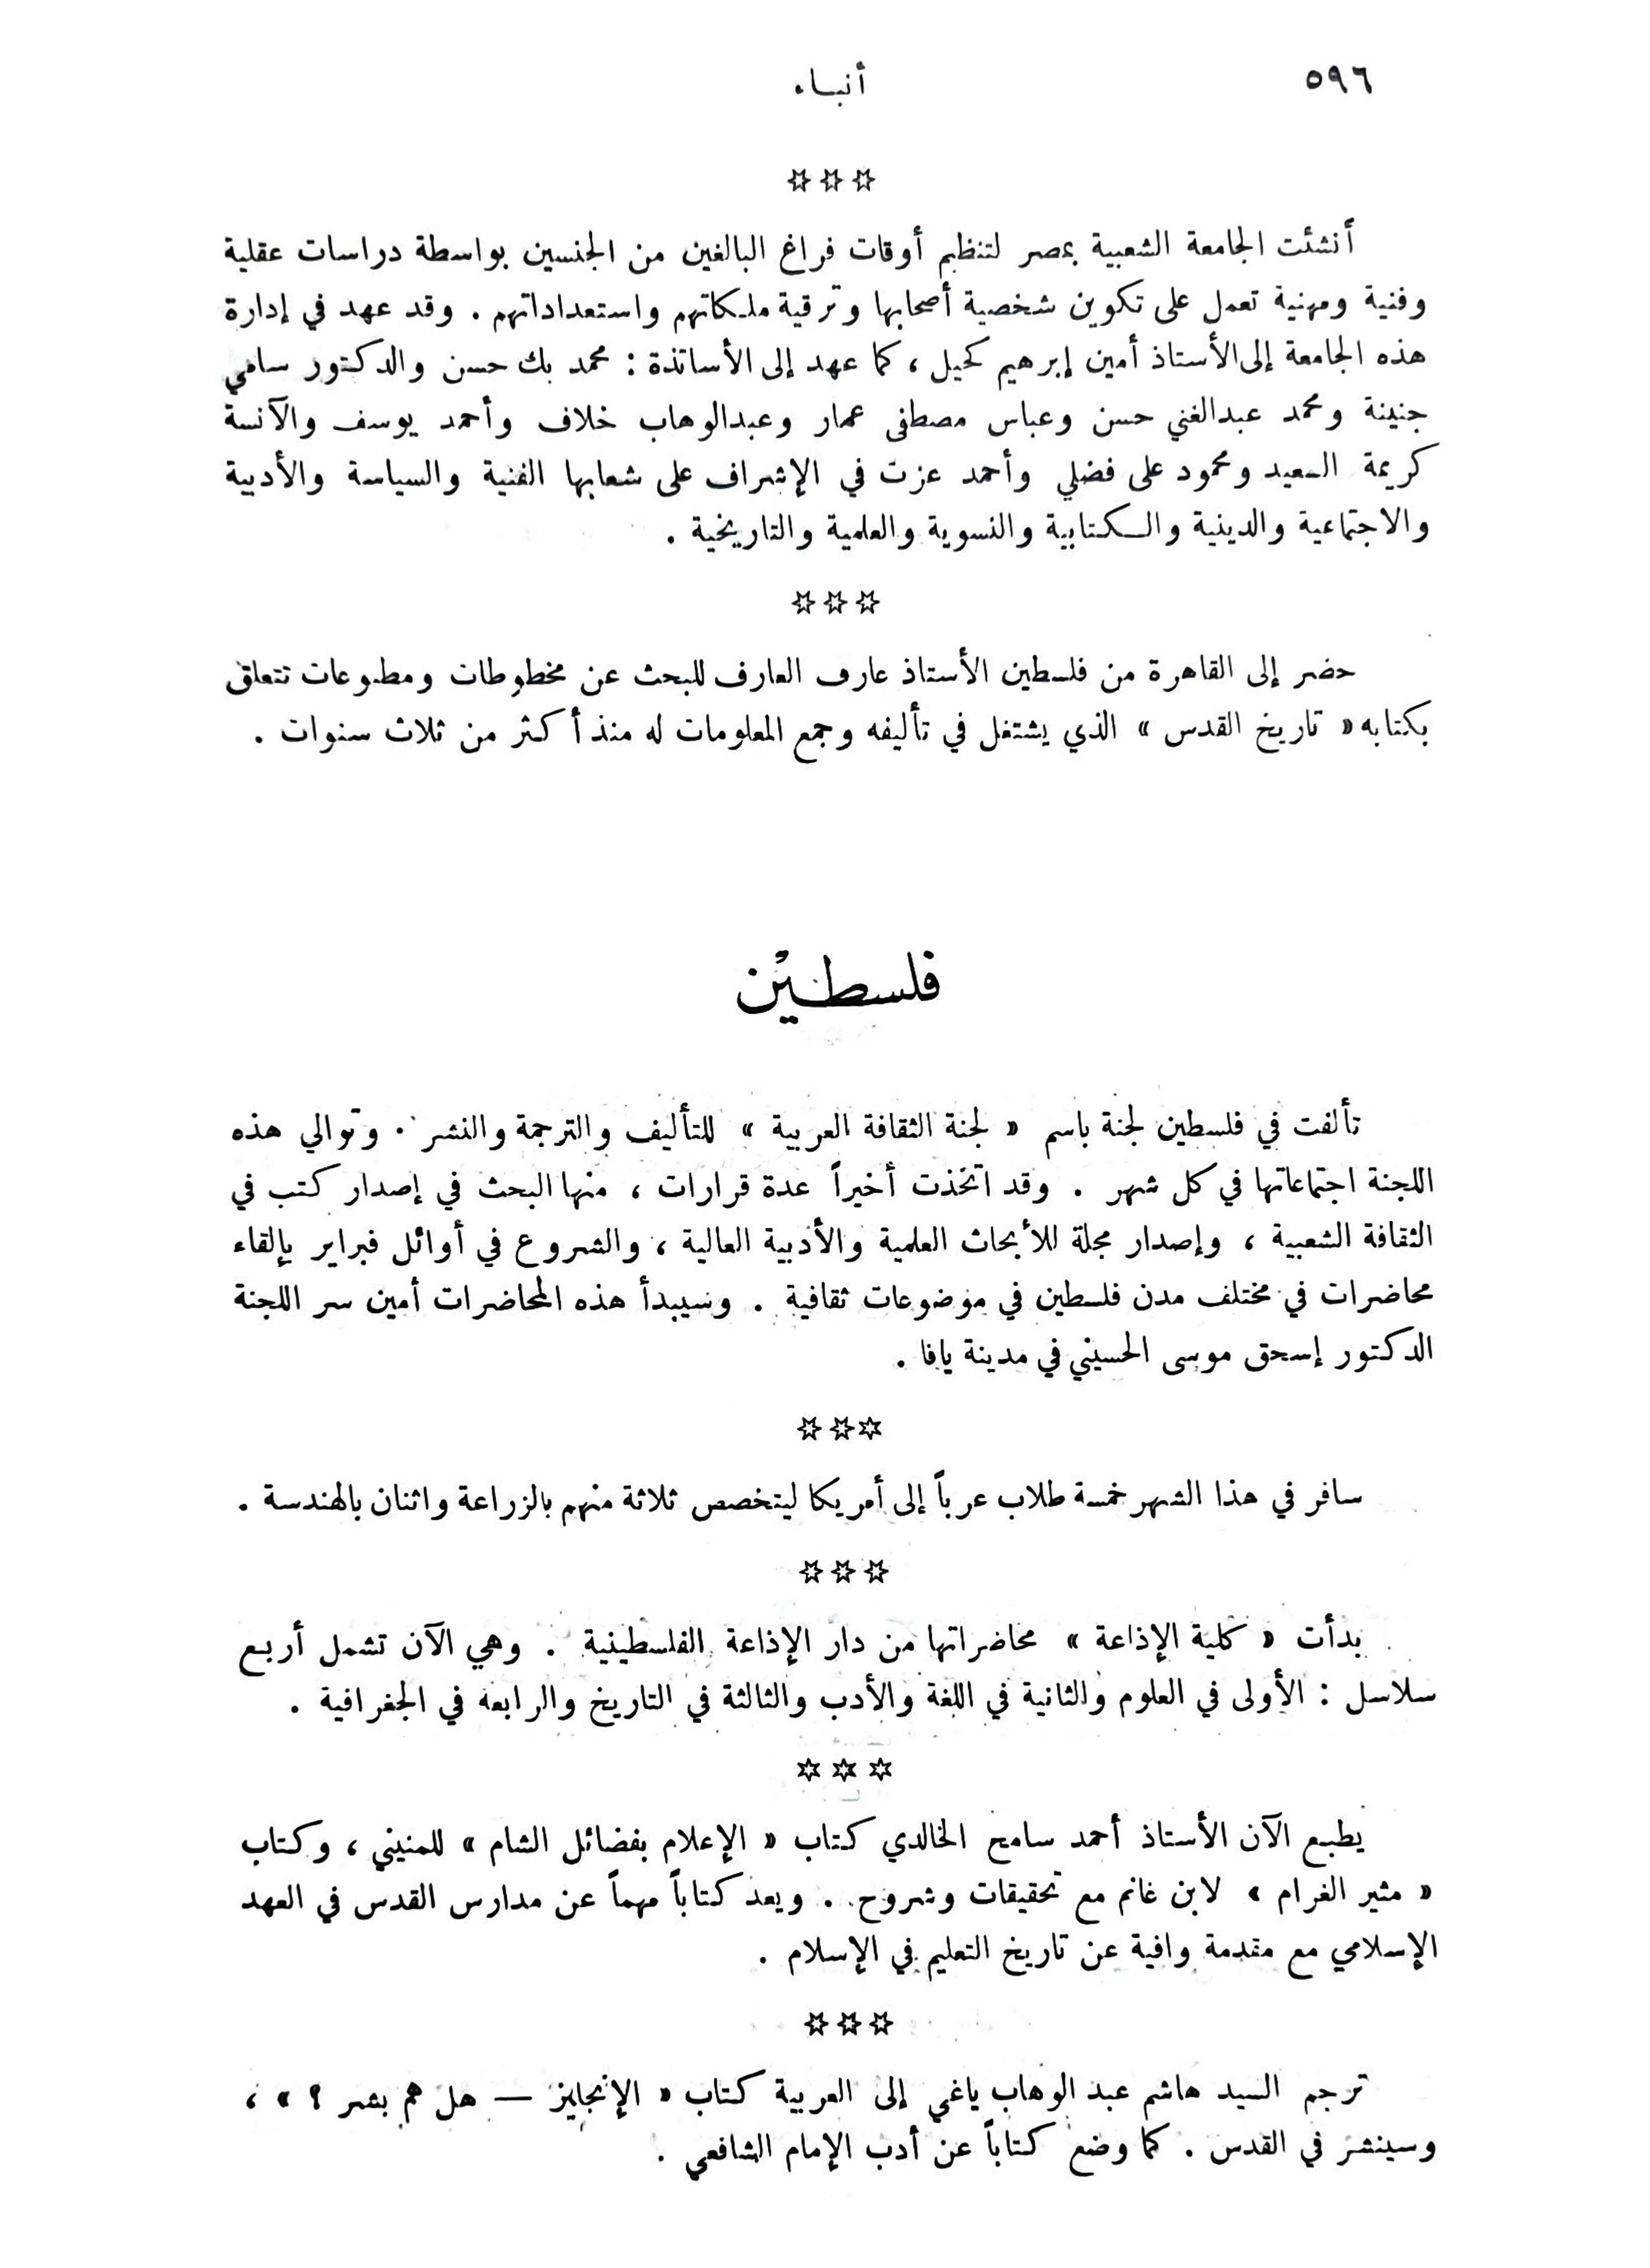 ٥٩٦
أنباء
☆☆☆
أنشئت الجامعة الشعبية بمصر لتنظيم أوقات فراغ البالغين من الجنسين بواسطة دراسات عقلية
وفنية ومهنية تعمل على تكوين شخصية أصحابها وترقية ملكاتهم واستعداداتهم . وقد عهد في إدارة
هذه الجامعة إلى الأستاذ أمين إبرهيم كحيل ، كما عهد إلى الأساتذة : محمد بك حسن والدكتور سامي
جنينة ومحمد عبدالغني حسن وعباس مصطفى عمار وعبدالوهاب خلاف وأحمد يوسف والآنسة
كريمة السعيد ومحمود على فضلي وأحمد عزت في الإشراف على شعابها الفنية والسياسة والأدبية
والاجتماعية والدينية والكتابية والنسوية والعلمية والتاريخية .
☆☆☆
حضر إلى القاهرة من فلسطين الأستاذ عارف العارف للبحث عن مخطوطات ومطبوعات تتعلق
بكتابه « تاريخ القدس » الذي يشتغل في تأليفه وجمع المعلومات له منذ أكثر من ثلاث سنوات .
فلسطين
تألفت في فلسطين لجنة باسم « لجنة الثقافة العربية » للتأليف والترجمة والنشر . وتوالي هذه
اللجنة اجتماعاتها في كل شهر . وقد اتخذت أخيراً عدة قرارات ، منها البحث في إصدار كتب في
الثقافة الشعبية ، وإصدار مجلة للأبحاث العلمية والأدبية العالية ، والشروع في أوائل فبراير بإلقاء
محاضرات في مختلف مدن فلسطين في موضوعات ثقافية . وسيبدأ هذه المحاضرات أمين سر اللجنة
الدكتور إسحق موسى الحسيني في مدينة يافا .
☆☆☆
سافر في هذا الشهر خمسة طلاب عرباً إلى أمريكا ليتخصص ثلاثة منهم بالزراعة واثنان بالهندسة .
☆☆☆
بدأت « كلية الإذاعة » محاضراتها من دار الإذاعة الفلسطينية . وهي الآن تشمل أربع
سلاسل : الأولى في العلوم والثانية في اللغة والأدب والثالثة في التاريخ والرابعة في الجغرافية .
☆☆☆
يطبع الآن الأستاذ أحمد سامح الخالدي كتاب « الإعلام بفضائل الشام » للمنيني ، وكتاب
« مثير الغرام » لابن غانم مع تحقيقات وشروح . ويعد كتاباً مهماً عن مدارس القدس في العهد
الإسلامي مع مقدمة وافية عن تاريخ التعليم في الإسلام .
☆☆☆
ترجم السيد هاشم عبد الوهاب ياغي إلى العربية كتاب « الإنجليز — هل هم بشر ؟ » ،
وسينشر في القدس . كما وضع كتاباً عن أدب الإمام الشافعي .